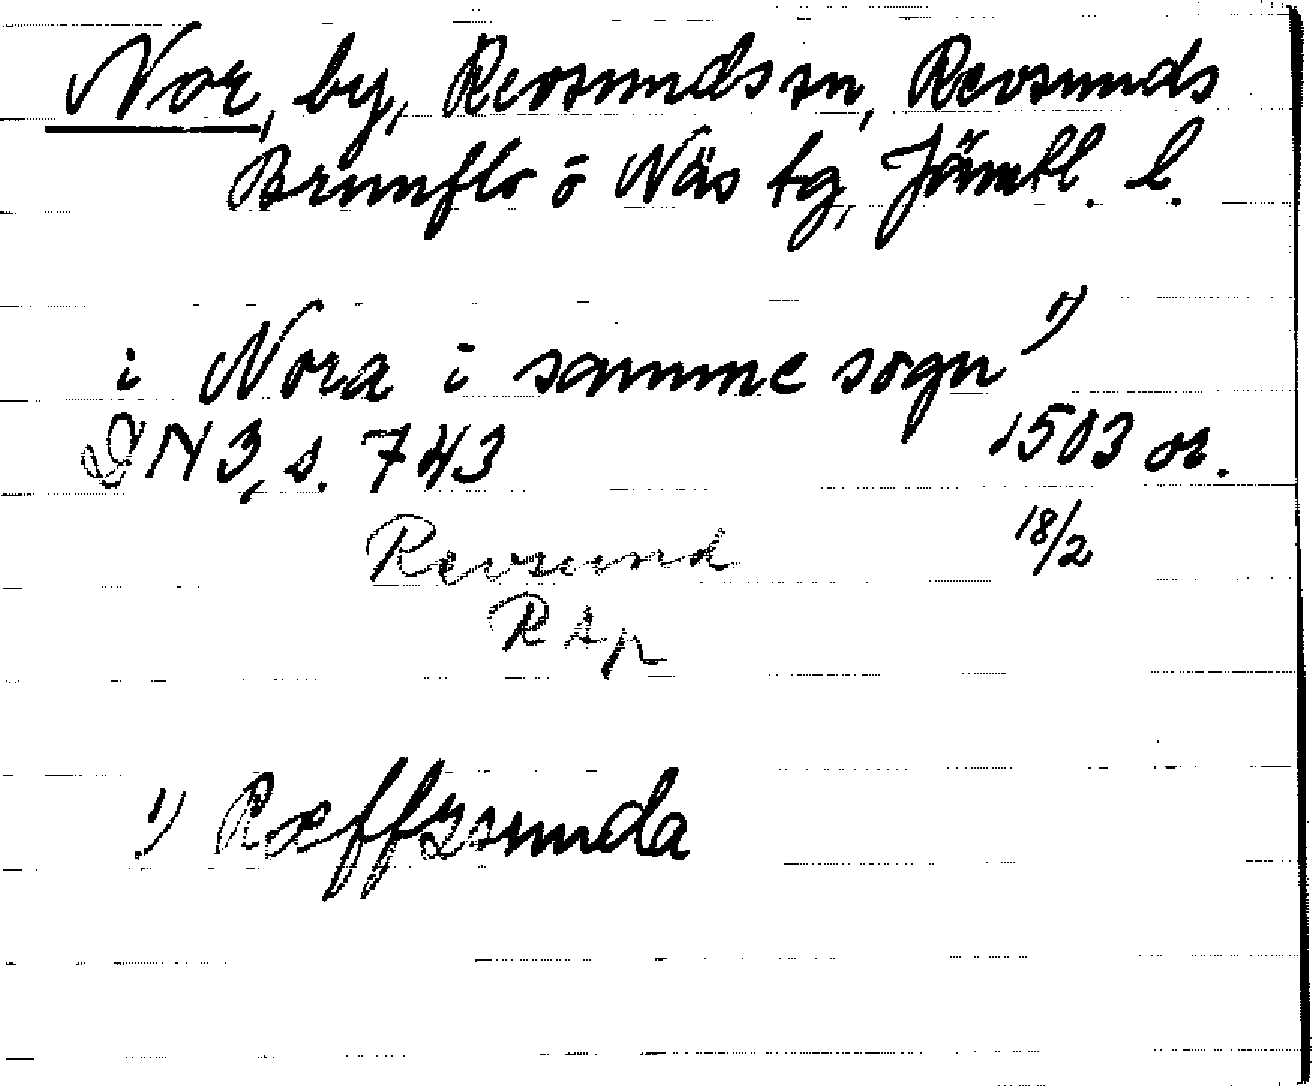 Nor, by, Revsunds sn, Revsunds
Brunflo o Näs tg, Jämtl. l.
i Nora i samme sogn ¹⁾
DN 3, s. 743 1503 or.
18/2
Revsund
R s p
¹⁾ Ræffzsunda